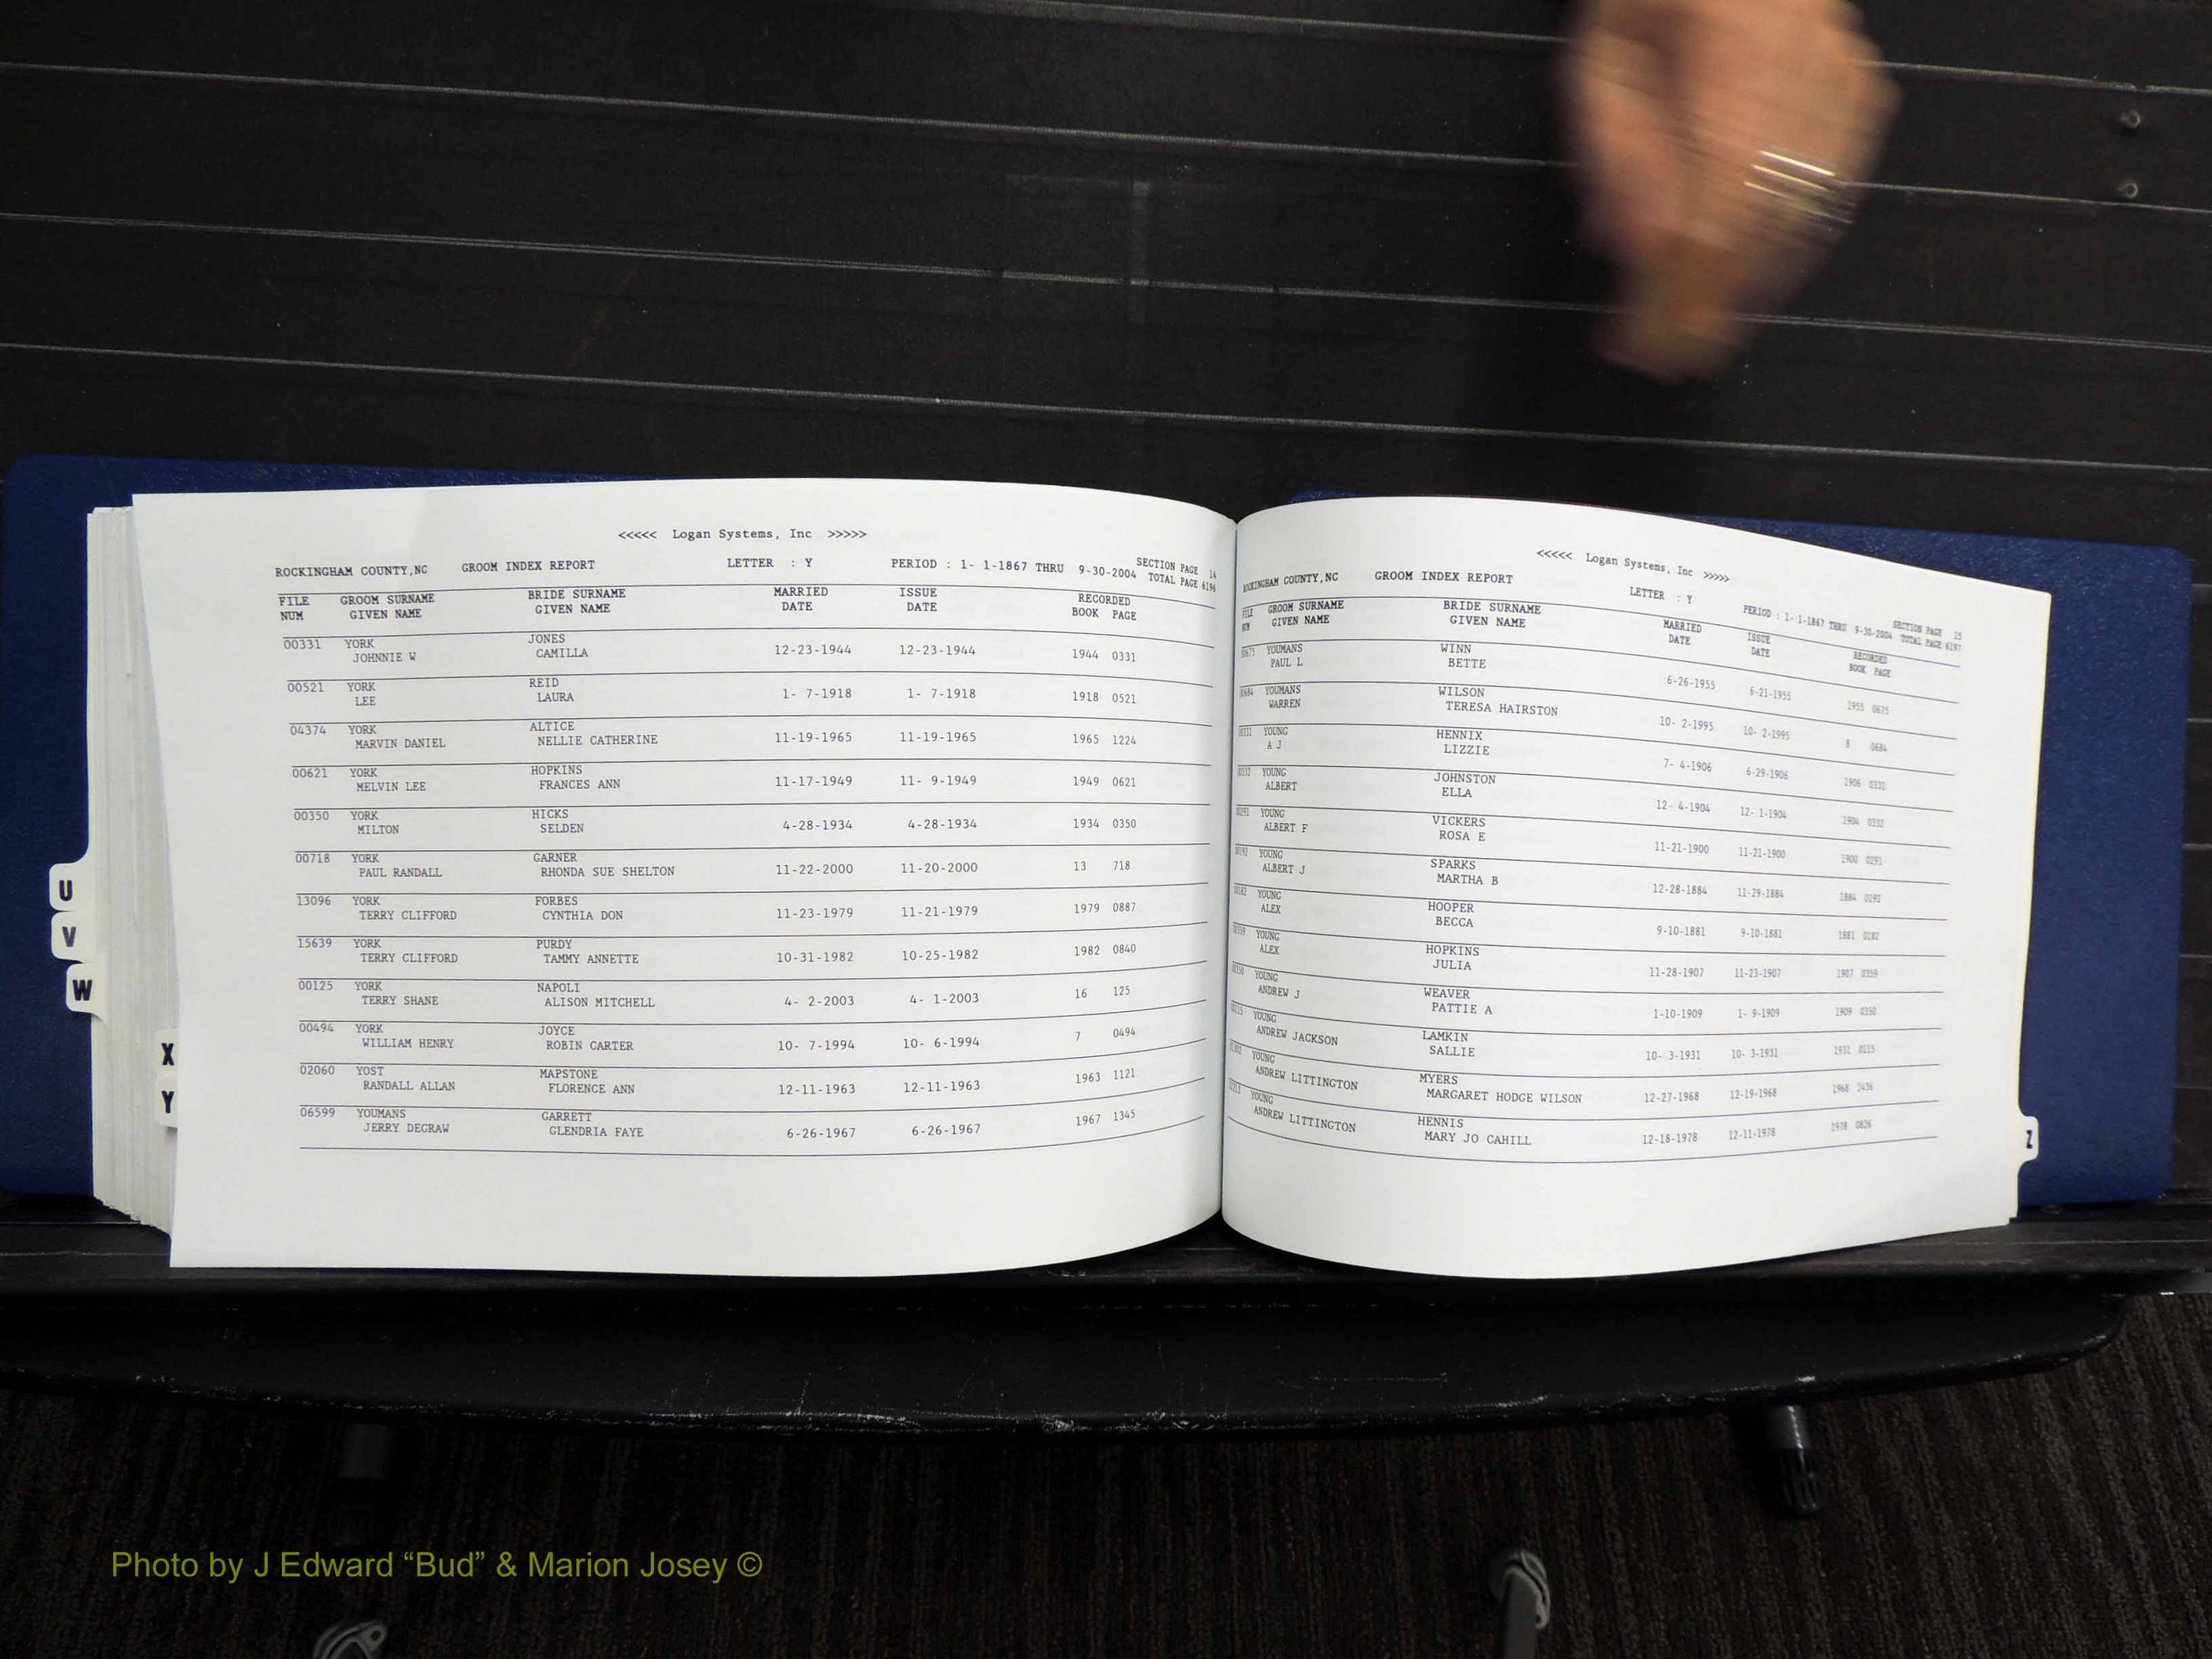 <<<<< Logan Systems, Inc >>>>>
ROCKINGHAM COUNTY,NC GROOM INDEX REPORT LETTER : Y PERIOD : 1- 1-1867 THRU 9-30-2004 SECTION PAGE 14
TOTAL PAGE 6196
FILE GROOM SURNAME BRIDE SURNAME MARRIED ISSUE RECORDED
NUM GIVEN NAME GIVEN NAME DATE DATE BOOK PAGE
00331 YORK JONES
JOHNNIE W CAMILLA 12-23-1944 12-23-1944 1944 0331
00521 YORK REID
LEE LAURA 1- 7-1918 1- 7-1918 1918 0521
04374 YORK ALTICE
MARVIN DANIEL NELLIE CATHERINE 11-19-1965 11-19-1965 1965 1224
00621 YORK HOPKINS
MELVIN LEE FRANCES ANN 11-17-1949 11- 9-1949 1949 0621
00350 YORK HICKS
MILTON SELDEN 4-28-1934 4-28-1934 1934 0350
00718 YORK GARNER
PAUL RANDALL RHONDA SUE SHELTON 11-22-2000 11-20-2000 13 718
13096 YORK FORBES
TERRY CLIFFORD CYNTHIA DON 11-23-1979 11-21-1979 1979 0887
15639 YORK PURDY
TERRY CLIFFORD TAMMY ANNETTE 10-31-1982 10-25-1982 1982 0840
00125 YORK NAPOLI
TERRY SHANE ALISON MITCHELL 4- 2-2003 4- 1-2003 16 125
00494 YORK JOYCE
WILLIAM HENRY ROBIN CARTER 10- 7-1994 10- 6-1994 7 0494
02060 YOST MAPSTONE
RANDALL ALLAN FLORENCE ANN 12-11-1963 12-11-1963 1963 1121
06599 YOUMANS GARRETT
JERRY DEGRAW GLENDRIA FAYE 6-26-1967 6-26-1967 1967 1345
<<<<< Logan Systems, Inc >>>>>
ROCKINGHAM COUNTY,NC GROOM INDEX REPORT LETTER : Y PERIOD : 1- 1-1867 THRU 9-30-2004 SECTION PAGE 15
TOTAL PAGE 6197
FILE GROOM SURNAME BRIDE SURNAME MARRIED ISSUE RECORDED
NUM GIVEN NAME GIVEN NAME DATE DATE BOOK PAGE
00675 YOUMANS WINN
PAUL L BETTE 6-26-1955 6-21-1955 1955 0675
00684 YOUMANS WILSON
WARREN TERESA HAIRSTON 10- 2-1995 10- 2-1995 8 0684
00331 YOUNG HENNIX
A J LIZZIE 7- 4-1906 6-29-1906 1906 0331
00332 YOUNG JOHNSTON
ALBERT ELLA 12- 4-1904 12- 1-1904 1904 0332
YOUNG VICKERS
ALBERT F ROSA E 11-21-1900 11-21-1900 1900
YOUNG SPARKS
ALBERT J MARTHA B 12-28-1884 11-29-1884 1884 0192
00182 YOUNG HOOPER
ALEX BECCA 9-10-1881 9-10-1881 1881 0182
00359 YOUNG HOPKINS
ALEX JULIA 11-28-1907 11-23-1907 1907 0359
00350 YOUNG WEAVER
ANDREW J PATTIE A 1-10-1909 1- 9-1909 1909 0350
00115 YOUNG LAMKIN
ANDREW JACKSON SALLIE 10- 3-1931 10- 3-1931 1931 0115
YOUNG MYERS
ANDREW LITTINGTON MARGARET HODGE WILSON 12-27-1968 12-19-1968 1968 1436
YOUNG HENNIS
ANDREW LITTINGTON MARY JO CAHILL 12-18-1978 12-11-1978 1978 0826
U
V
W
X
Y
Z
Photo by J Edward “Bud” & Marion Josey ©